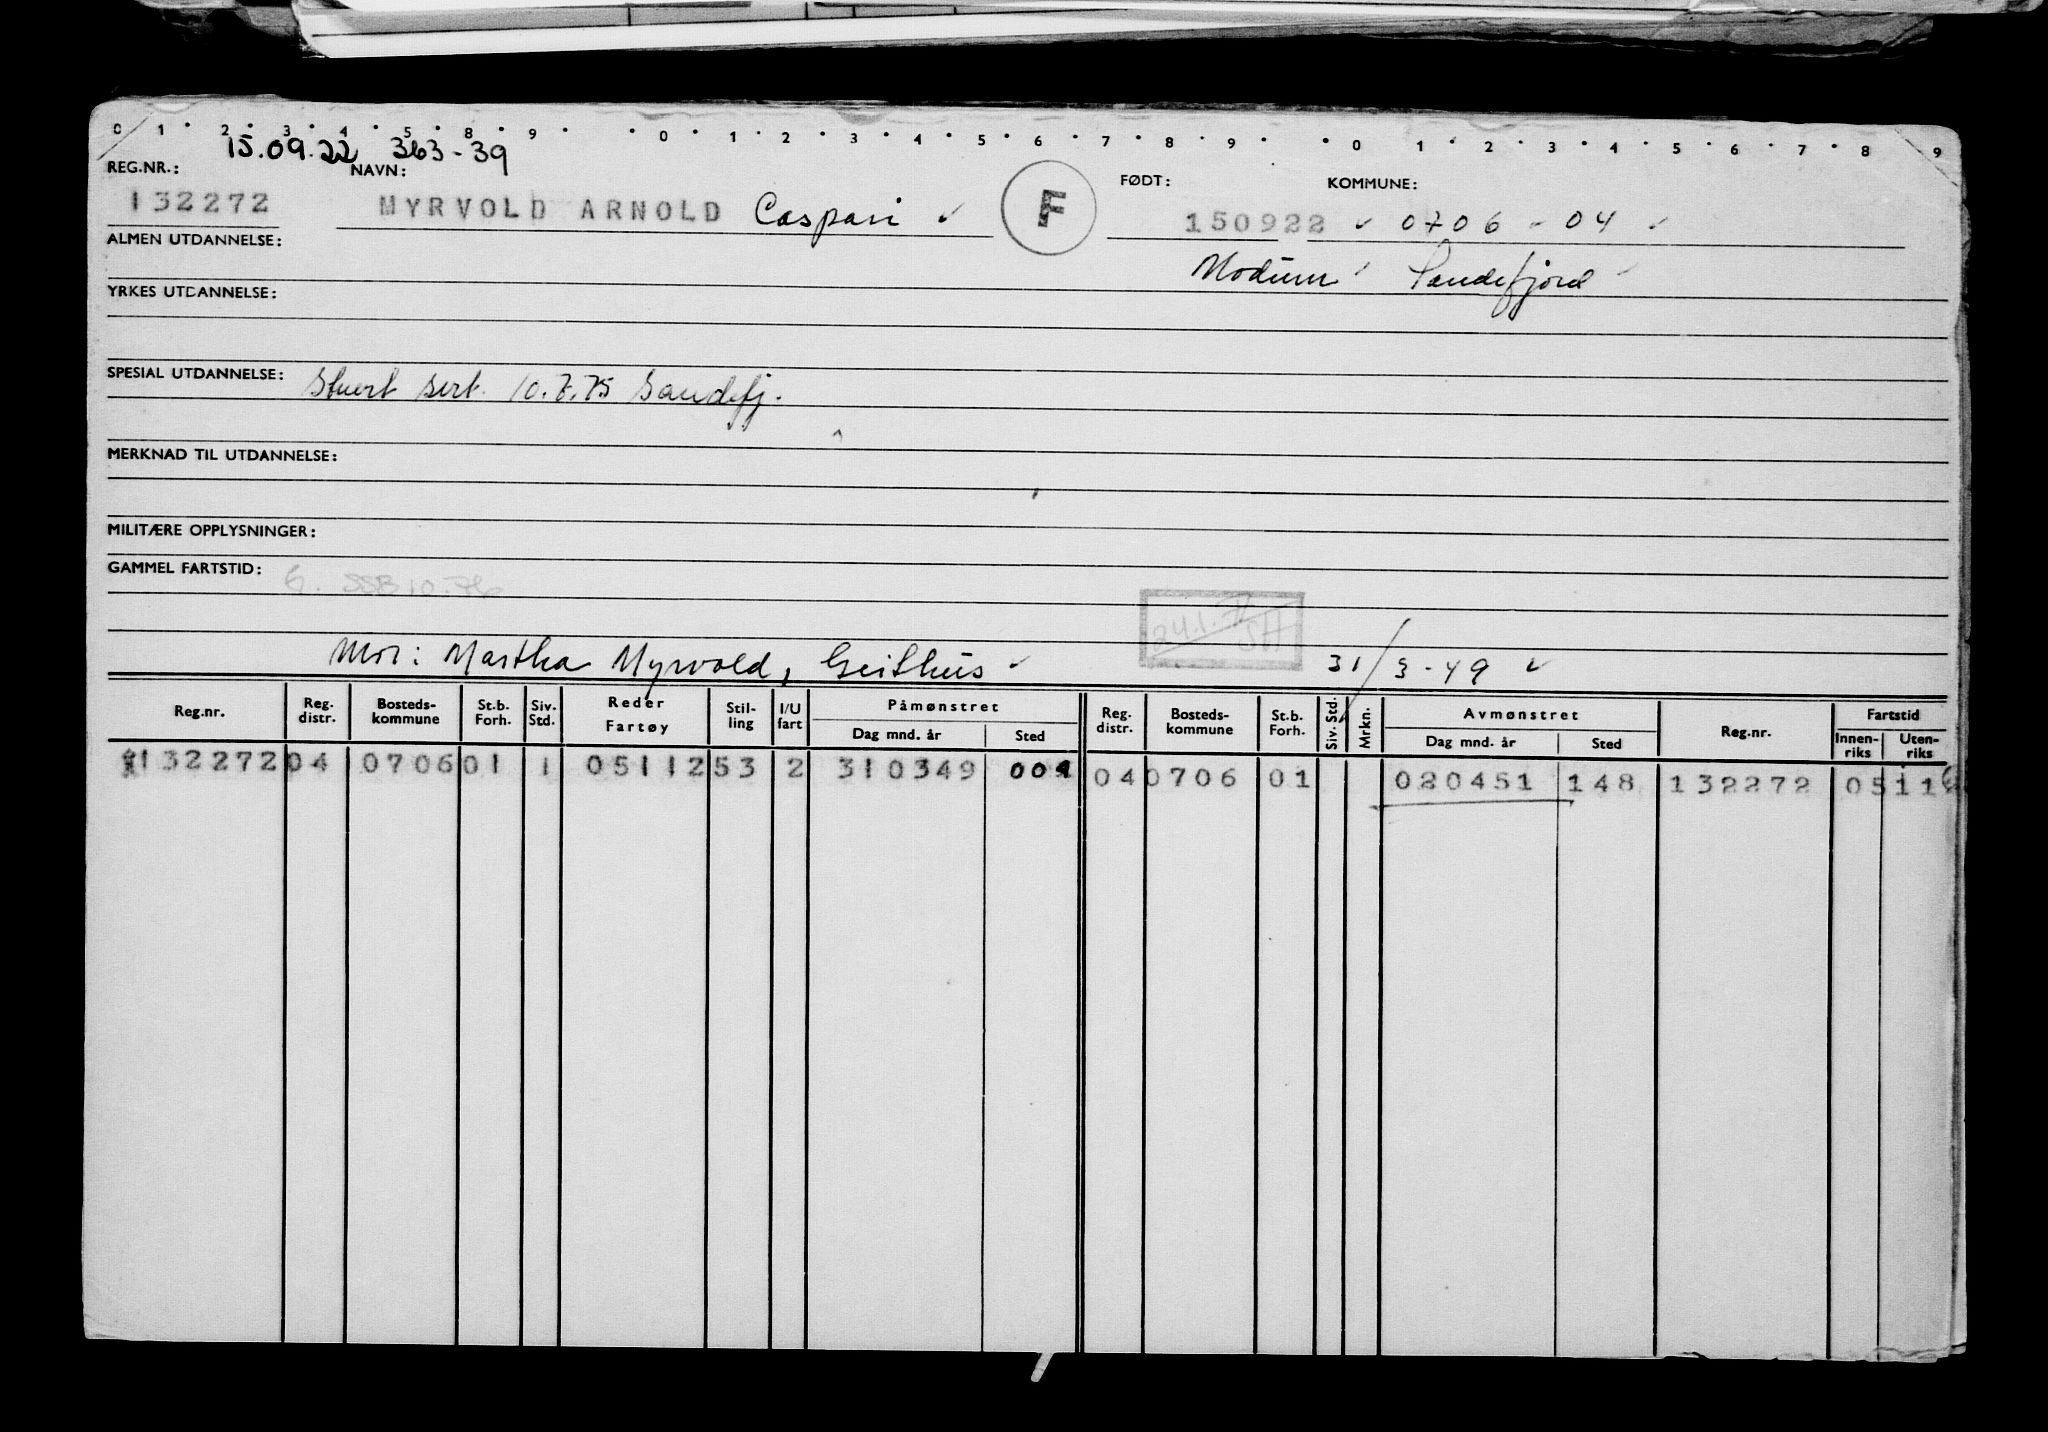 0 1 2 3 4 5 8 9 0 1 2 3 4 5 6 7 8 9 0 1 2 3 4 5 6 7 8 9
15.09.22 363-39
REG.NR.: NAVN: FØDT: KOMMUNE:
132272 MYRVOLD ARNOLD Caspari ✓ F 150922 ✓ 0706 - 04 ✓
ALMEN UTDANNELSE:
Modum Sandefjord
YRKES UTDANNELSE:
SPESIAL UTDANNELSE: Stuert sert. 10.7.75 Sandefj.
MERKNAD TIL UTDANNELSE:
MILITÆRE OPPLYSNINGER:
GAMMEL FARTSTID: G. SSB 10.76
24.1. SH
Mor: Martha Myrvold, Geithus ✓ 31/3-49 ✓
Reg.nr. Reg. distr. Bosteds-kommune St.b. Forh. Siv. Std. Reder Fartøy Stil-ling I/U fart Påmønstret Dag mnd. år Sted Reg. distr. Bosteds-kommune St.b. Forh. Siv. Std. Mrkn. Avmønstret Dag mnd. år Sted Reg.nr. Fartstid Innen-riks Uten-riks
132272 04 0706 01 1 05112 53 2 310349 004 04 0706 01 020451 148 132272 05 11